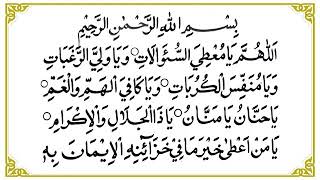 بِسْمِ اللهِ الرَّحْمٰنِ الرَّحِيْمِ
اَللّٰهُمَّ يَا مُعْطِيَ السُّؤَالَاتِ ۞ وَيَا وَلِيَّ الرَّغَبَاتِ
وَيَا مُنَفِّسَ الْكُرُبَاتِ ۞ وَيَا كَافِيَ الْهَمِّ وَالْغَمِّ ۞
يَا حَنَّانُ يَا مَنَّانُ ۞ يَا ذَا الْجَلَالِ وَالْاِكْرَامِ ۞
يَا مَنْ اَعْطٰى خَيْرَ مَا فِيْ خَزَآئِنِهِ الْاِيْمَانَ بِهٖ